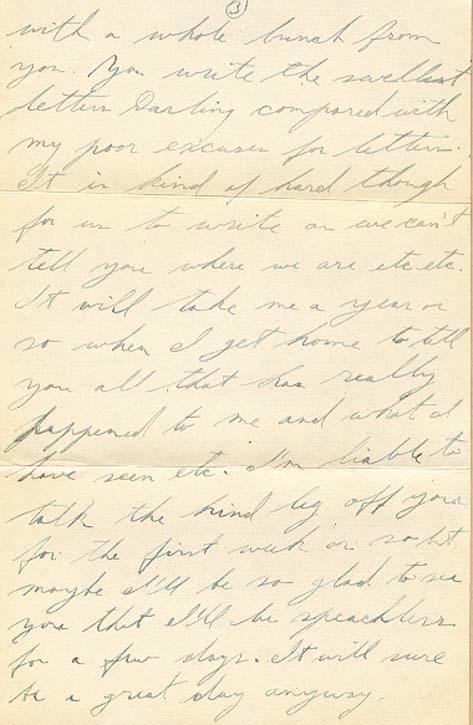 3
with a whole bunch from
you. You write the swellest
letters Darling compared with
my poor excuses for letters.
It is kind of hard though
for us to write as we can't
tell you where we are etc etc.
It will take me a year or
so when I get home to tell
you all that has really
happened to me and what I
have seen etc. I'm liable to
talk the hind leg off you
for the first week or so but
maybe I'll be so glad to see
you that I'll be speachless
for a few days. It will sure
be a great day anyway.